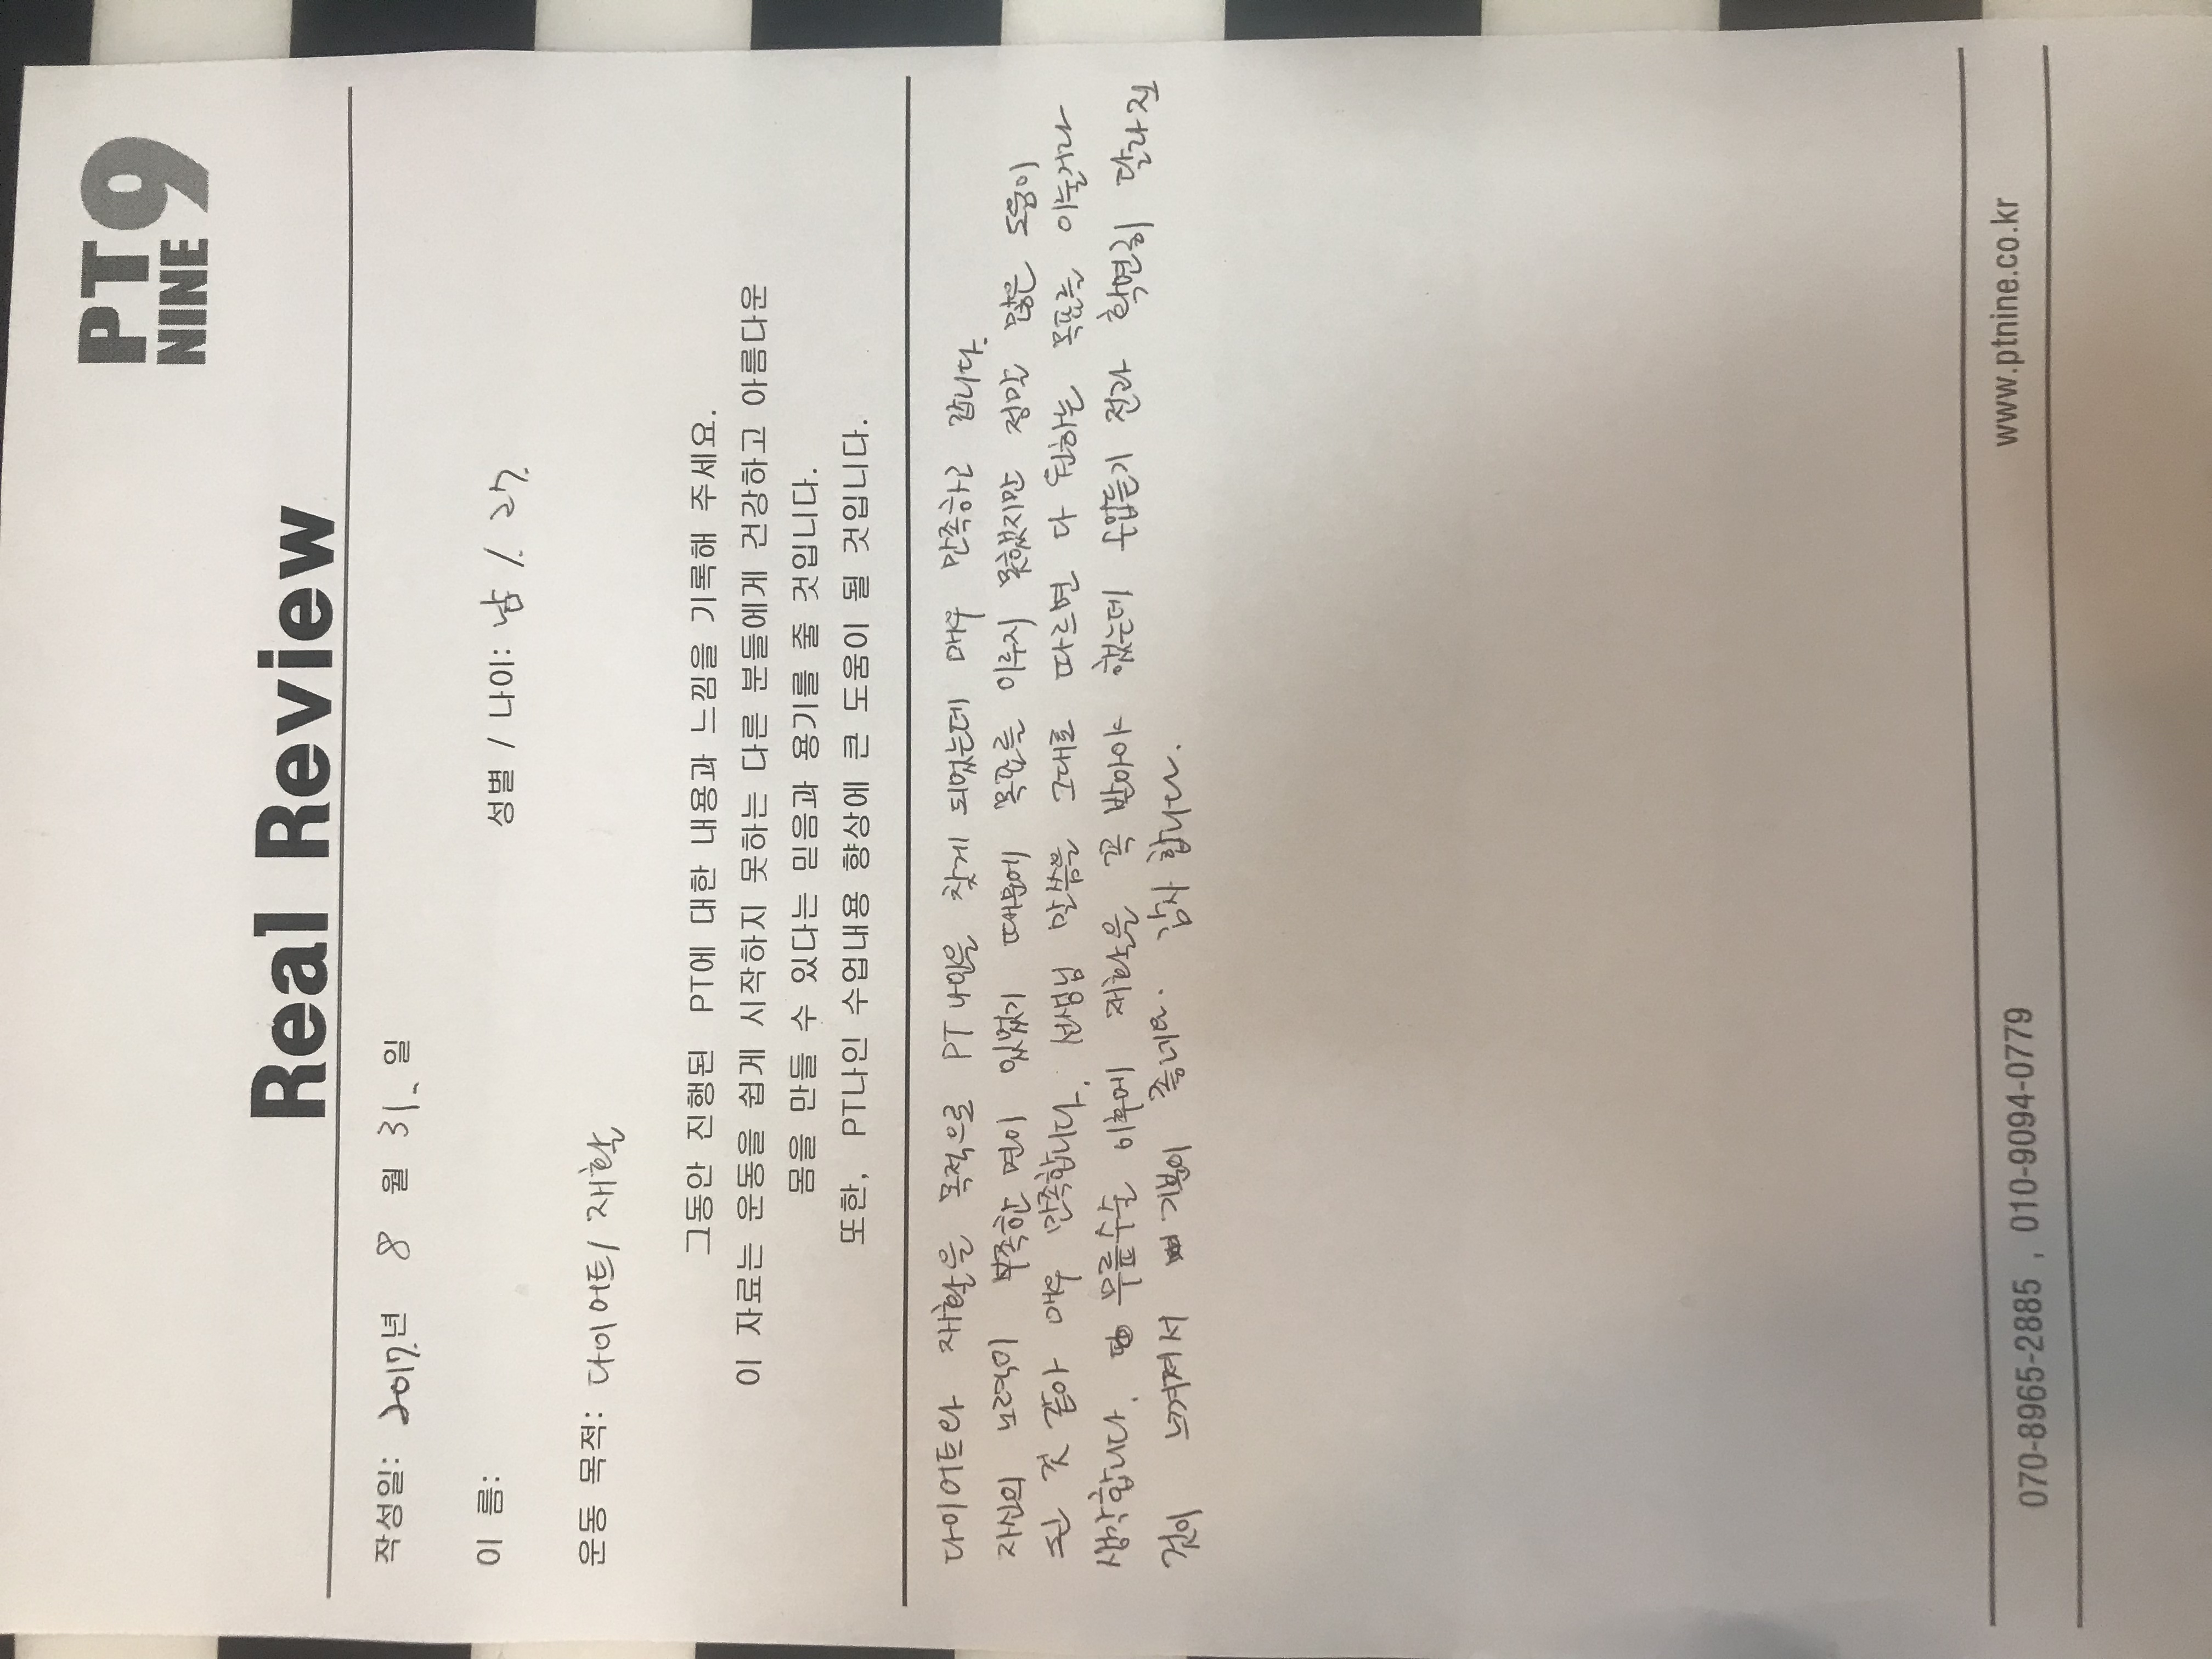 PT9
NINE
Real Review
작성일: 2017년 8 월 31. 일
이 름:
성별 / 나이: 남 / 27.
운동 목적: 다이어트/ 재활
그동안 진행된 PT에 대한 내용과 느낌을 기록해 주세요.
이 자료는 운동을 쉽게 시작하지 못하는 다른 분들에게 건강하고 아름다운
몸을 만들 수 있다는 믿음과 용기를 줄 것입니다.
또한, PT나인 수업내용 향상에 큰 도움이 될 것입니다.
다이어트와 재활을 목적으로 PT나인을 찾게 되었는데 매우 만족하고 갑니다.
자신의 노력이 부족한 면이 있었기 때문에 목표를 이루지 못했지만 정말 많은 도움이
된 것 같아 매우 만족합니다. 선생님 말씀을 그대로 따르면 다 원하는 목표를 이룰거라
생각합니다. 무릎수술 이후에 재활을 꼭 받아야 했는데 수업듣기 전과 확연히 달라진
것이 느껴져서 기분이 좋네요. 감사합니다.
070-8965-2885 , 010-9094-0779
www.ptnine.co.kr